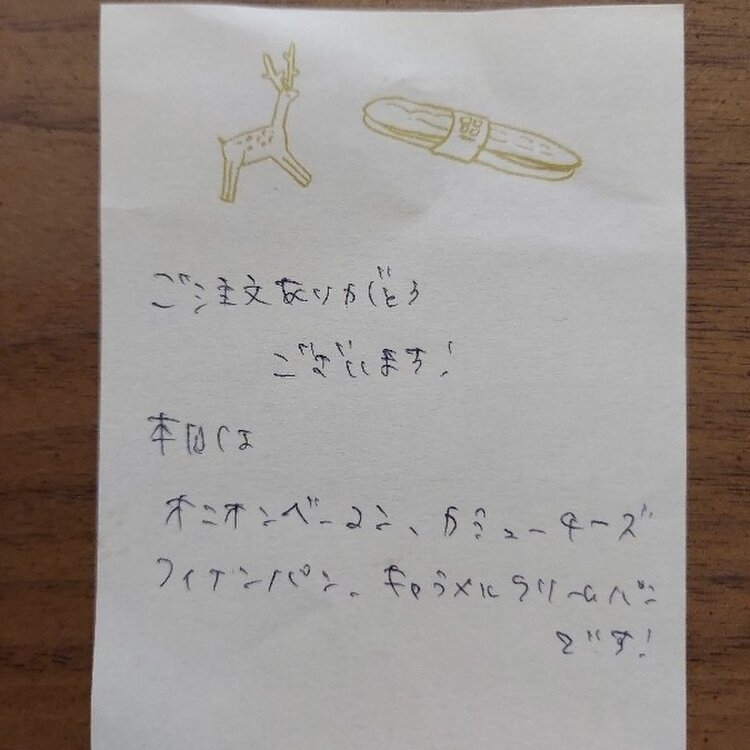 ご注文ありがとう
ございます!
本日は
オニオンベーコン、カシューチーズ
フィナンパン、キャラメルクリームパン
です!